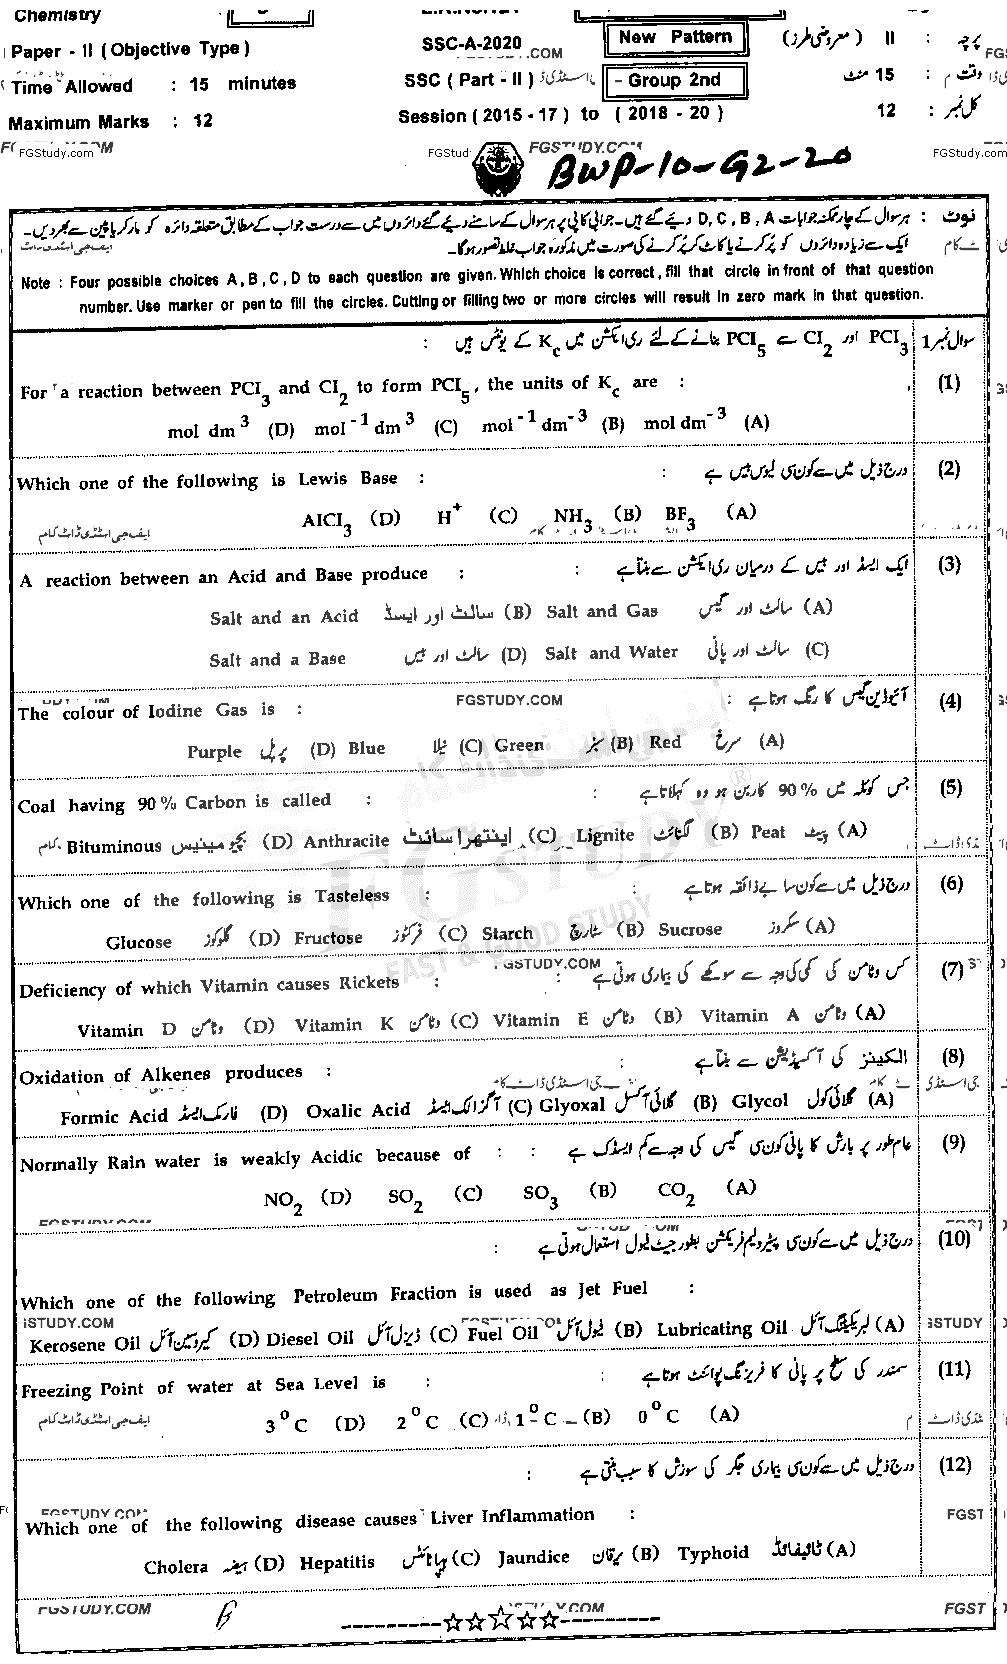 Chemistry
Paper - II (Objective Type)
SSC-A-2020
New Pattern
پرچہ : II (معروضی طرز)
Time Allowed : 15 minutes
SSC (Part - II)
Group 2nd
وقت : 15 منٹ
Maximum Marks : 12
Session (2015 - 17) to (2018 - 20)
کل نمبر : 12
FGStudy.com
FGSTUDY.COM
FGStudy.com
BWP-10-G2-20
نوٹ : ہر سوال کے چار ممکنہ جوابات D, C, B, A دیئے گئے ہیں۔ جوابی کاپی پر ہر سوال کے سامنے دیئے گئے دائروں میں سے درست جواب کے مطابق متعلقہ دائرہ کو مارکر یا پین سے بھر دیں۔
ایک سے زیادہ دائروں کو پُر کرنے یا کاٹ کر پُر کرنے کی صورت میں مذکورہ جواب غلط تصور ہوگا۔
Note : Four possible choices A, B, C, D to each question are given. Which choice is correct, fill that circle in front of that question
number. Use marker or pen to fill the circles. Cutting or filling two or more circles will result in zero mark in that question.
سوال نمبر 1 PCl₃ اور Cl₂ سے PCl₅ بنانے کے لئے ری ایکشن میں Kc کے یونٹس ہیں :
For a reaction between PCl₃ and Cl₂ to form PCl₅, the units of Kc are : (1)
mol dm³ (D) mol⁻¹ dm³ (C) mol⁻¹ dm⁻³ (B) mol dm⁻³ (A)
(2) درج ذیل میں سے کون سی لیوس بیس ہے :
Which one of the following is Lewis Base :
AlCl₃ (D) H⁺ (C) NH₃ (B) BF₃ (A)
(3) ایک ایسڈ اور بیس کے درمیان ری ایکشن سے بنتا ہے :
A reaction between an Acid and Base produce :
Salt and an Acid سالٹ اور ایسڈ (B) Salt and Gas سالٹ اور گیس (A)
Salt and a Base سالٹ اور بیس (D) Salt and Water سالٹ اور پانی (C)
FGSTUDY.COM
(4) آئیوڈین گیس کا رنگ ہوتا ہے :
The colour of Iodine Gas is :
Purple پرپل (D) Blue نیلا (C) Green سبز (B) Red سرخ (A)
(5) جس کوئلہ میں 90% کاربن ہو وہ کہلاتا ہے :
Coal having 90% Carbon is called :
Bituminous بچومینیس (D) Anthracite اینتھراسائٹ (C) Lignite لگنائٹ (B) Peat پیٹ (A)
FGSTUDY
FAST & GOOD STUDY
(6) درج ذیل میں سے کون سا بے ذائقہ ہوتا ہے :
Which one of the following is Tasteless :
Glucose گلوکوز (D) Fructose فرکٹوز (C) Starch سٹارچ (B) Sucrose سکروز (A)
FGSTUDY.COM
(7) کس وٹامن کی کمی کی وجہ سے سوکھے کی بیماری ہوتی ہے :
Deficiency of which Vitamin causes Rickets :
Vitamin D وٹامن (D) Vitamin K وٹامن (C) Vitamin E وٹامن (B) Vitamin A وٹامن (A)
(8) الکینز کی آکسیڈیشن سے بنتا ہے :
Oxidation of Alkenes produces :
Formic Acid فارمک ایسڈ (D) Oxalic Acid آگزالک ایسڈ (C) Glyoxal گلائی آکسل (B) Glycol گلائی کول (A)
(9) عام طور پر بارش کا پانی کون سی گیس کی وجہ سے کم ایسڈک ہے :
Normally Rain water is weakly Acidic because of :
NO₂ (D) SO₂ (C) SO₃ (B) CO₂ (A)
(10) درج ذیل میں سے کون سی پیٹرولیم فریکشن بطور جیٹ فیول استعمال ہوتی ہے :
Which one of the following Petroleum Fraction is used as Jet Fuel :
Kerosene Oil کیروسین آئل (D) Diesel Oil ڈیزل آئل (C) Fuel Oil فیول آئل (B) Lubricating Oil لبریکیٹنگ آئل (A)
(11) سمندر کی سطح پر پانی کا فریزنگ پوائنٹ ہوتا ہے :
Freezing Point of water at Sea Level is :
3⁰C (D) 2⁰C (C) 1⁰C (B) 0⁰C (A)
(12) درج ذیل میں سے کون سی بیماری جگر کی سوزش کا سبب بنتی ہے :
FGSTUDY.COM
Which one of the following disease causes Liver Inflammation :
Cholera ہیضہ (D) Hepatitis ہیپاٹائٹس (C) Jaundice یرقان (B) Typhoid ٹائیفائڈ (A)
FGSTUDY.COM